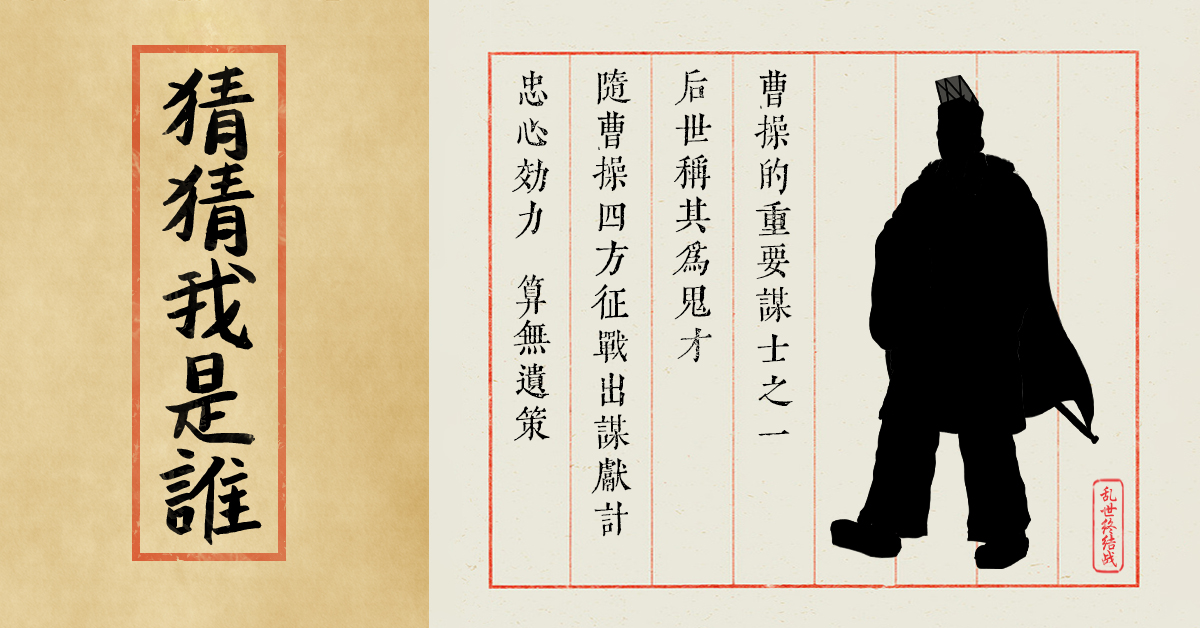 猜猜我是誰
曹操的重要謀士之一
后世稱其為鬼才
隨曹操四方征戰出謀獻計
忠心効力 算無遺策
乱世终结战